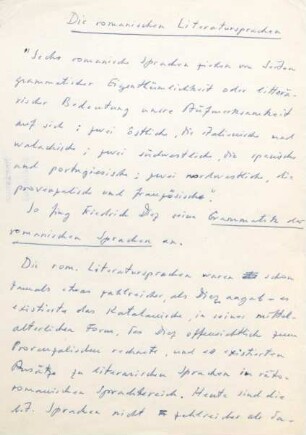 Die romanischen Literatursprachen
"Sechs romanische Sprachen ziehen von Seiten
grammatischer Eigenthümlichkeit oder littera-
rischer Bedeutung unsre Aufmerksamkeit
auf sich: zwei östlich, die italienische und
walachische; zwei südwestlich, die spanische
und portugiesische; zwei nordwestlich, die
provenzalische und französische".
So fing Friedrich Diez seine Grammatik der
romanischen Sprachen an.
Die rom. Literatursprachen waren schon
damals etwas zahlreicher, als Diez angab - es
existierte das Katalanische, in seiner mittel-
alterlichen Form, das Diez offensichtlich zum
Provenzalischen rechnete, und es existierten
Ansätze zu literarischen Sprachen im räto-
romanischen Sprachbereich. Heute sind die
lit. Sprachen nicht zahlreicher als da-